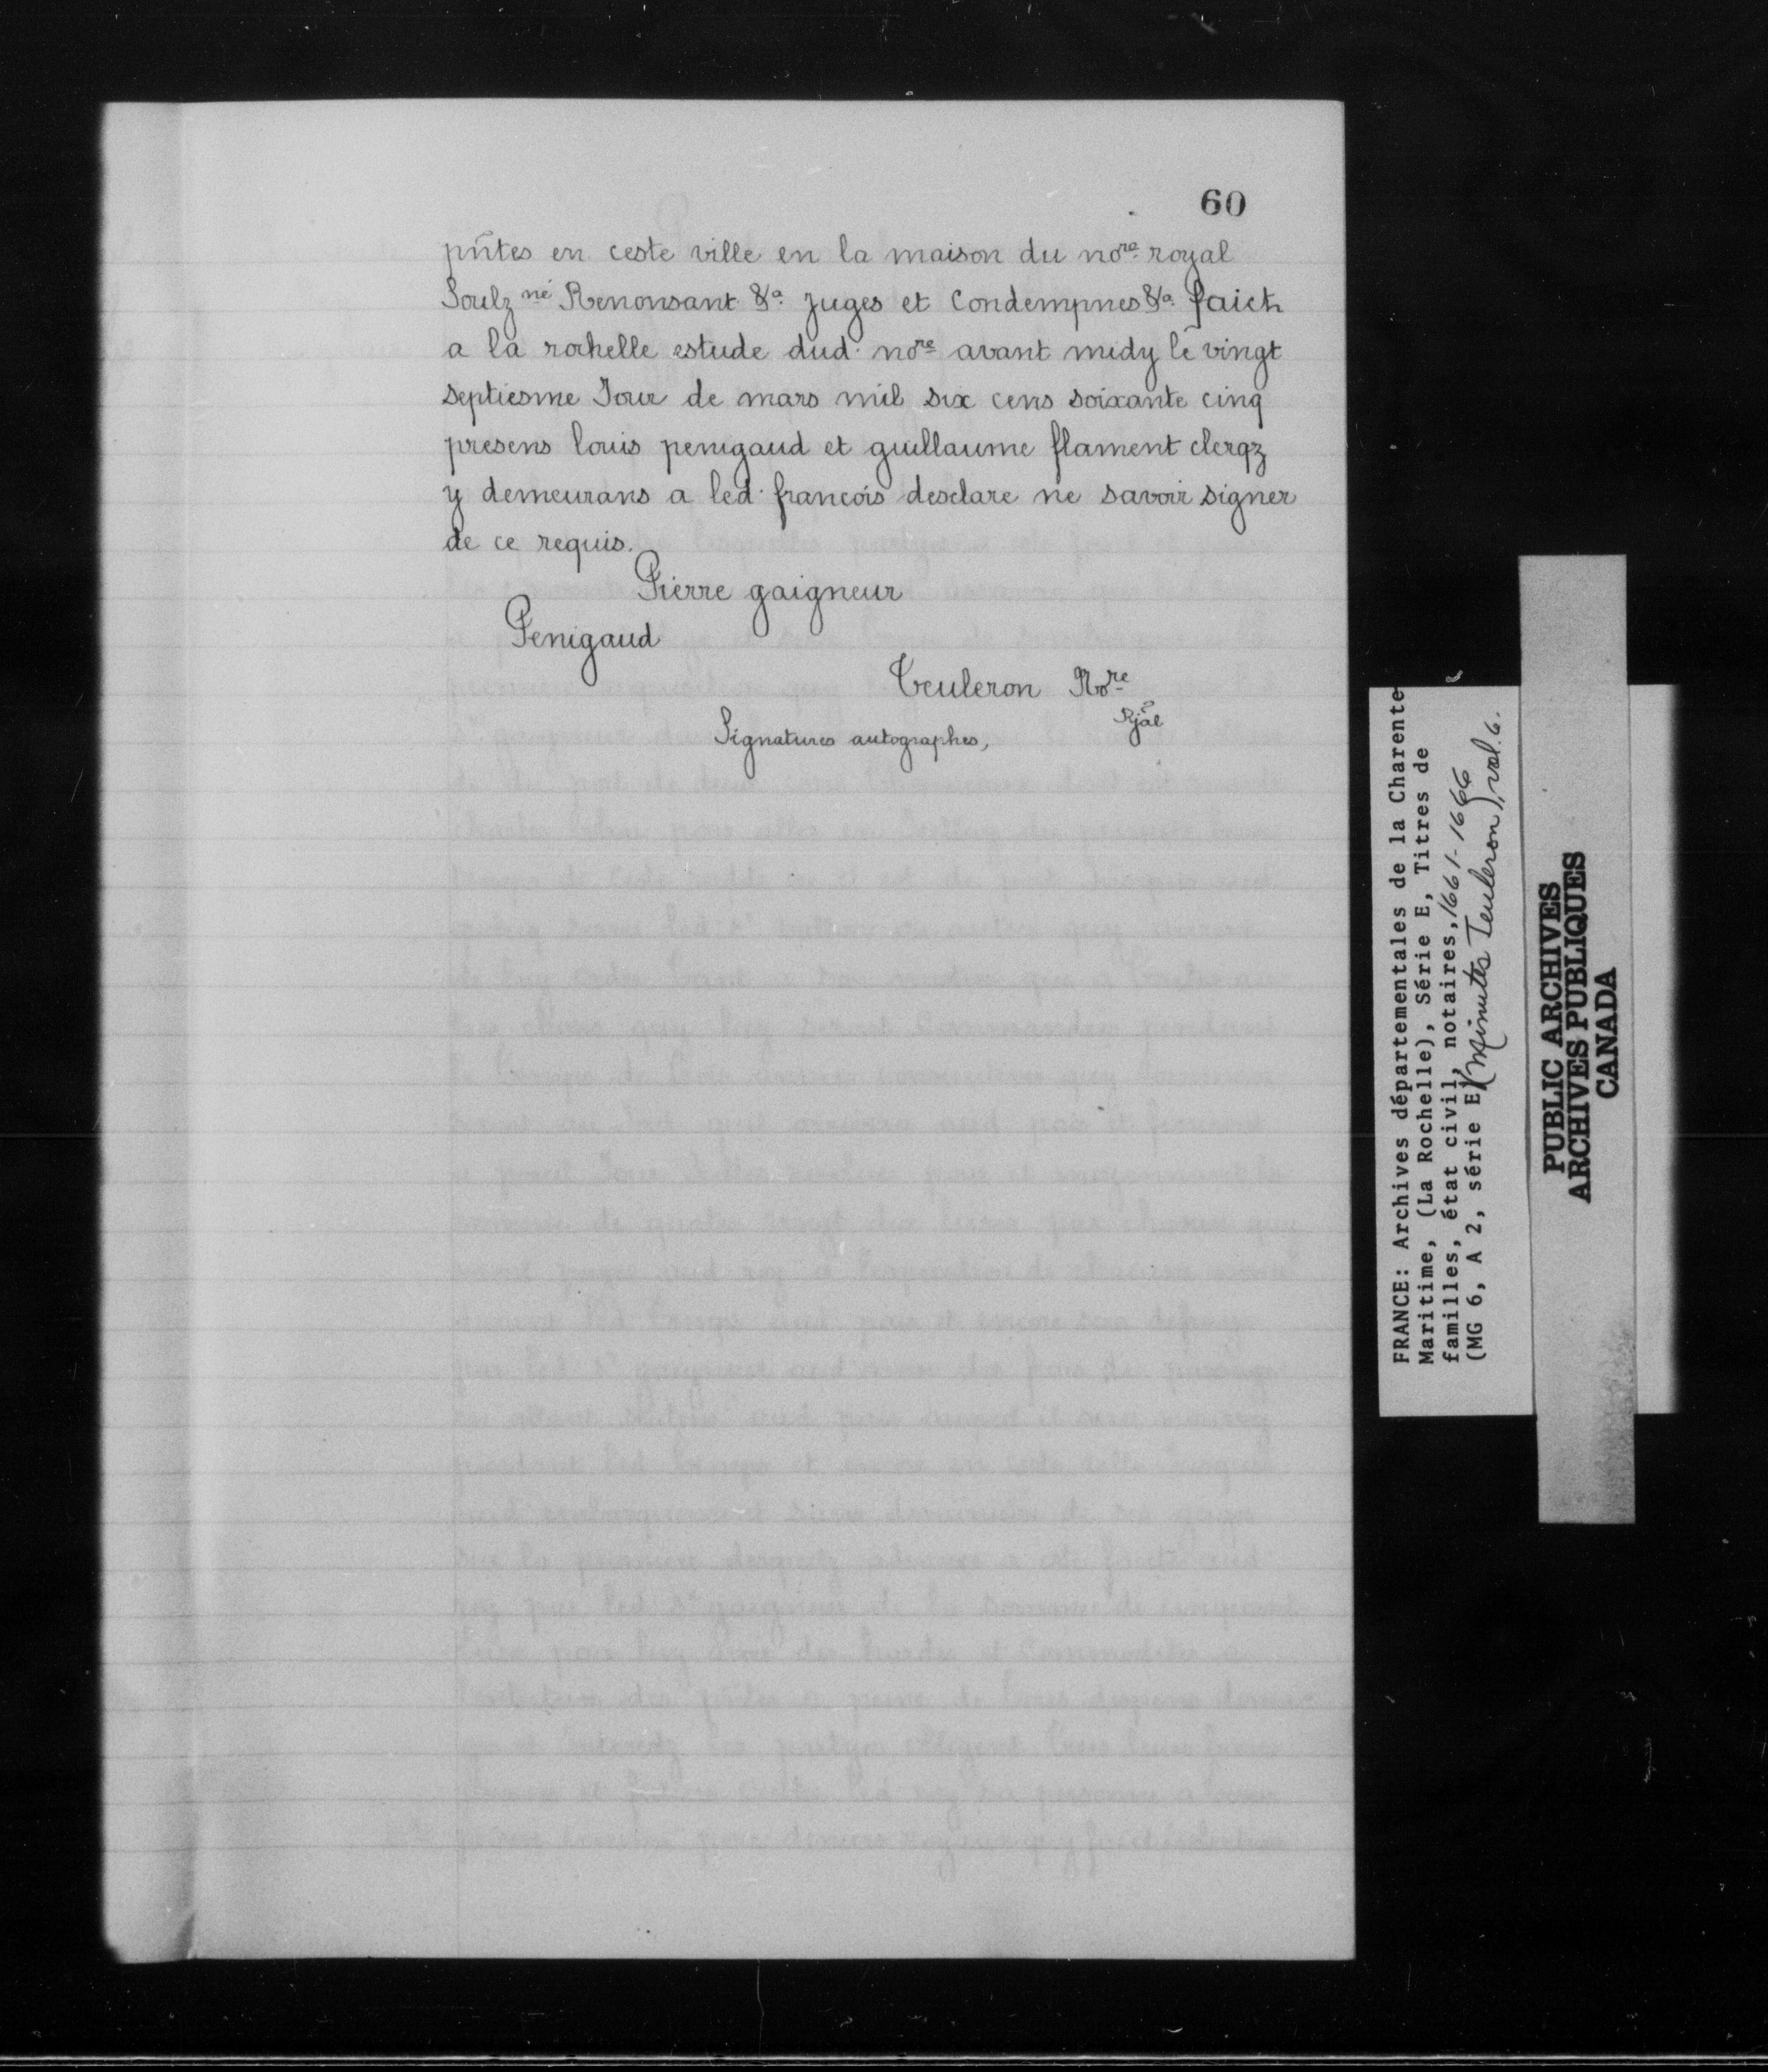 60
pñtes en ceste ville en la maison du no.re royal
Soulz né Renonsant &a. Juges et Condempnes &a. faict
a la rochelle estude dud. no.re avant midy le vingt
septiesme Jour de mars mil six cens soixante cinq
presens louis penigaud et guillaume flament clercz
y demeurans a led. francois desclare ne savoir signer
de ce requis.
Pierre gaigneur
Penigaud
Teuleron No.re
Rjal
Signatures autographes,
FRANCE: Archives départementales de la Charente
Maritime, (La Rochelle), Série E, Titres de
familles, état civil, notaires, 1661-1666
(MG 6, A 2, série E) (Minutes Teuleron), vol. 6.
PUBLIC ARCHIVES
ARCHIVES PUBLIQUES
CANADA